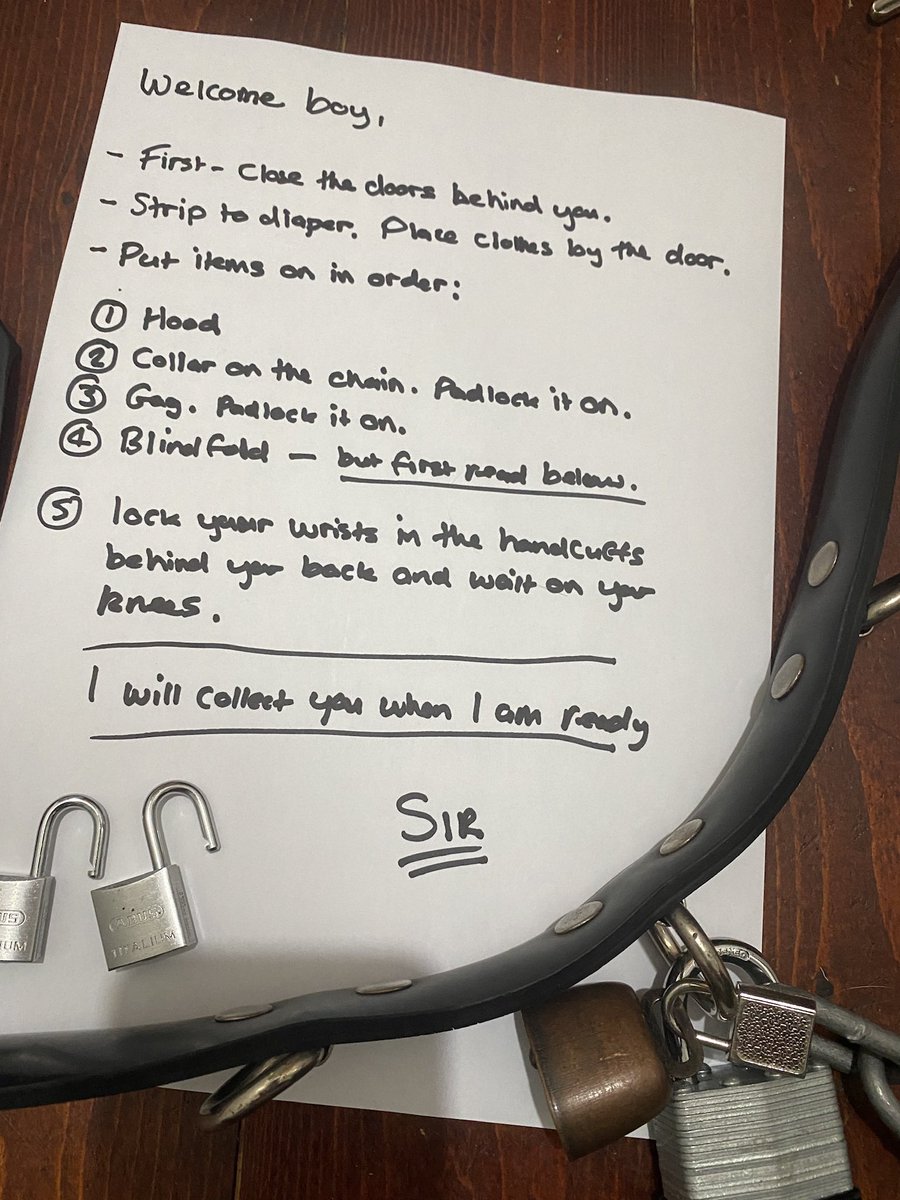 Welcome boy,
- First - Close the doors behind you.
- Strip to diaper. Place clothes by the door.
- Put items on in order:
① Hood
② Collar on the chain. Padlock it on.
③ Gag. Padlock it on.
④ Blindfold — but first read below.
⑤ lock your wrists in the handcuffs
behind your back and wait on your
knees.
I will collect you when I am ready
SIR
ABUS
TITALIUM